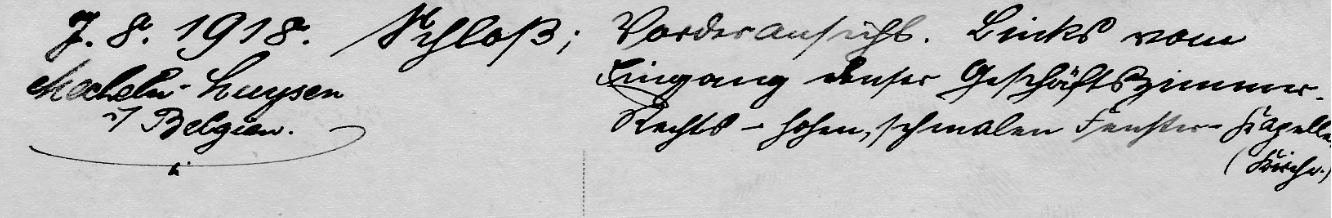 7. 8. 1918. Schloß; Vorderansicht. Links vom
Mecheln-Muysen Eingang unser Geschäftszimmer.
i/ Belgien. Rechts - hohen, schmalen Fenster - Kapelle
(Kirche.)